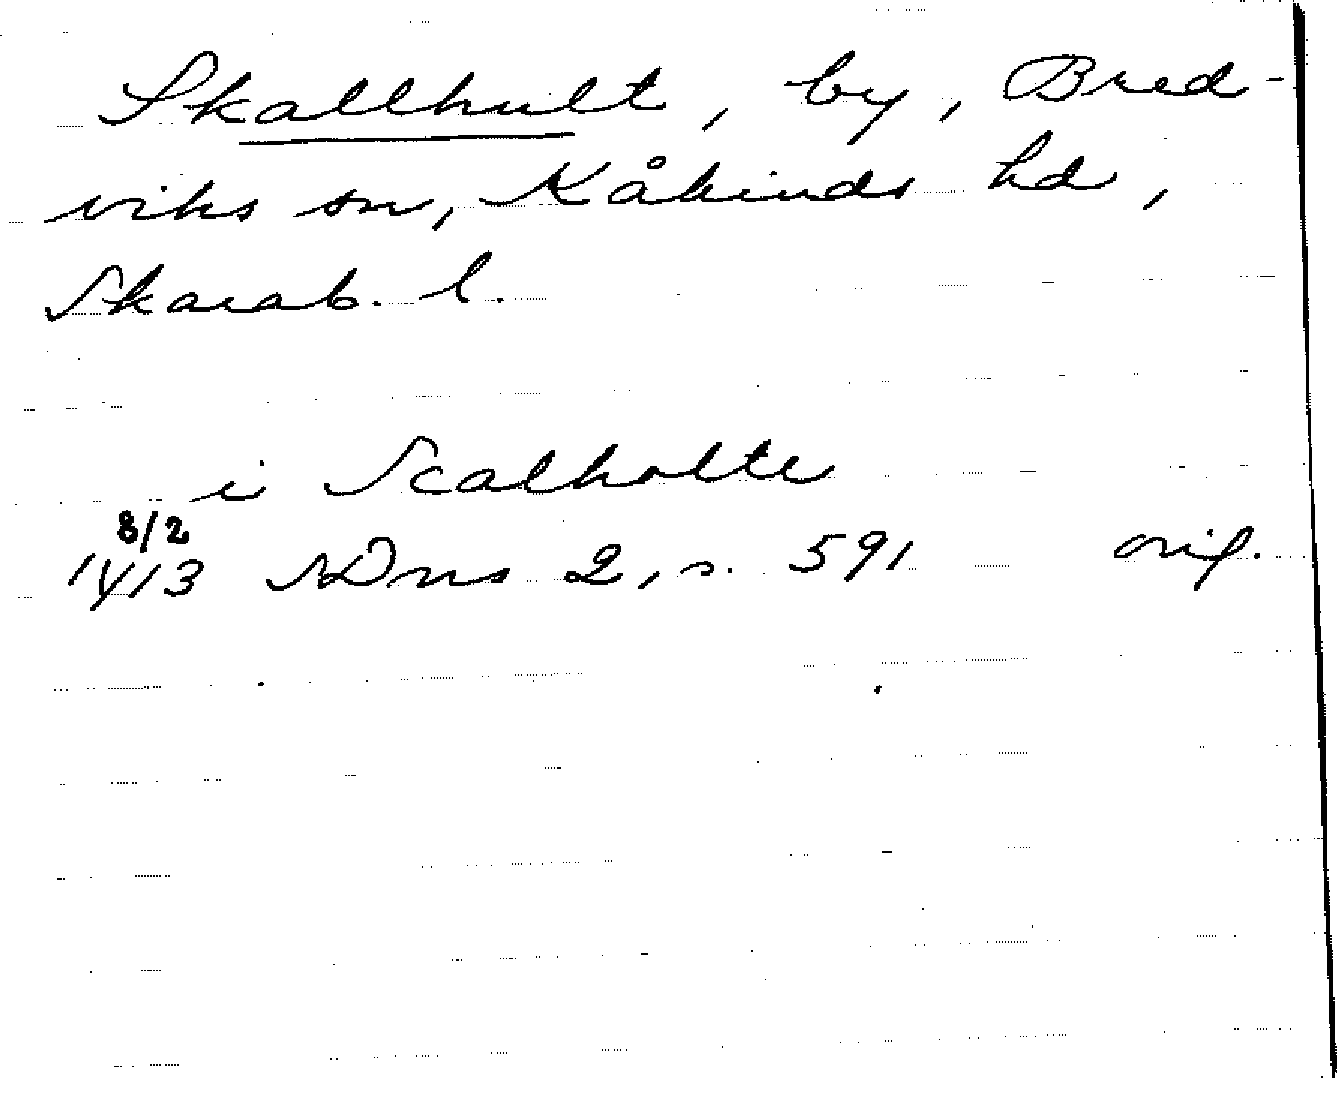 Skallhult, by, Bred-
viks sn, Kåkinds hd,
Skarab. l.
i Scalholte
8/2
1413 SDns 2, s. 591 orig.